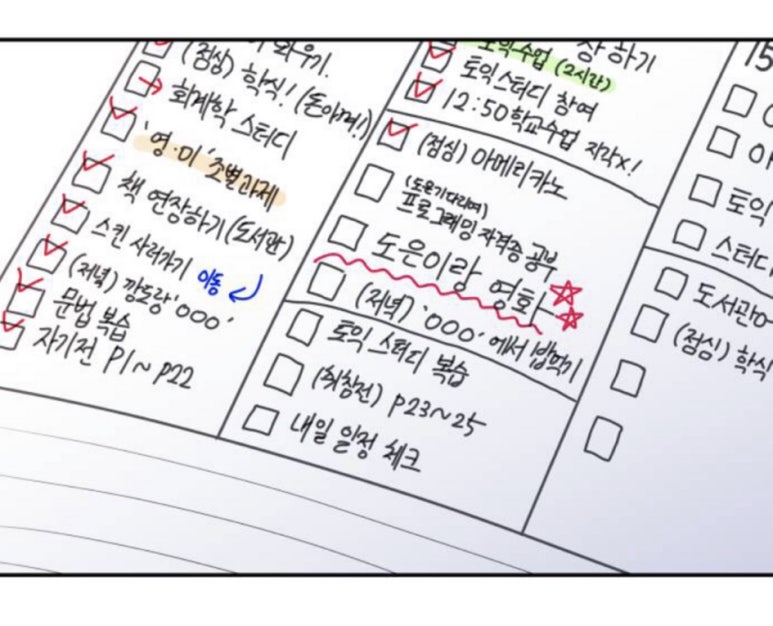 외우기.
(점심) 학식! (돈아껴!)
회계학 스터디
'영·미' 조별과제
책 연장하기(도서관)
스킨 사러가기 이동
(저녁) 깡도랑 'ooo'
문법 복습
자기전 P1~P22
하기
토익수업 (2시간)
토익스터디 참여
12:50 학교수업 지각x!
(점심) 아메리카노
(도은기다리며)
프로그래밍 자격증 공부
도은이랑 영화
(저녁) 'ooo'에서 밥먹기
토익 스터디 복습
(취침전) P23~25
내일 일정 체크
15
토익
스터디
도서관
(점심) 학식